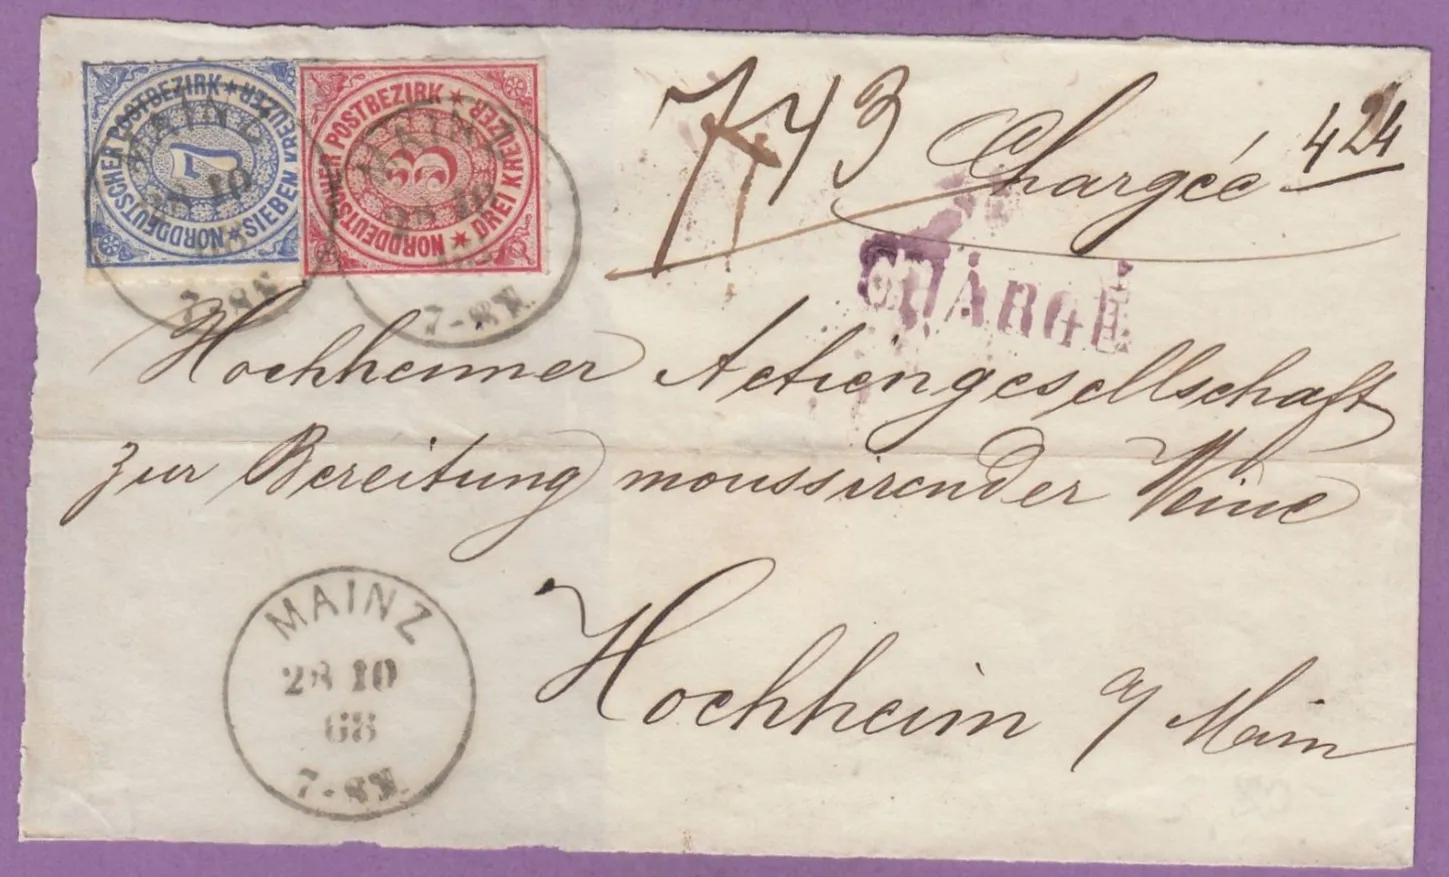 NORDDEUTSCHER POSTBEZIRK ★ SIEBEN KREUZER ★
7
NORDDEUTSCHER POSTBEZIRK ★ DREI KREUZER ★
3
MAINZ
28 10
7-8N.
MAINZ
28 10
7-8N.
743
Chargée 424
CHARGÉ
Hochheimer Actiengesellschaft
zur Bereitung moussirender Weine
Hochheim a/ Main
MAINZ
28 10
68
7-8N.